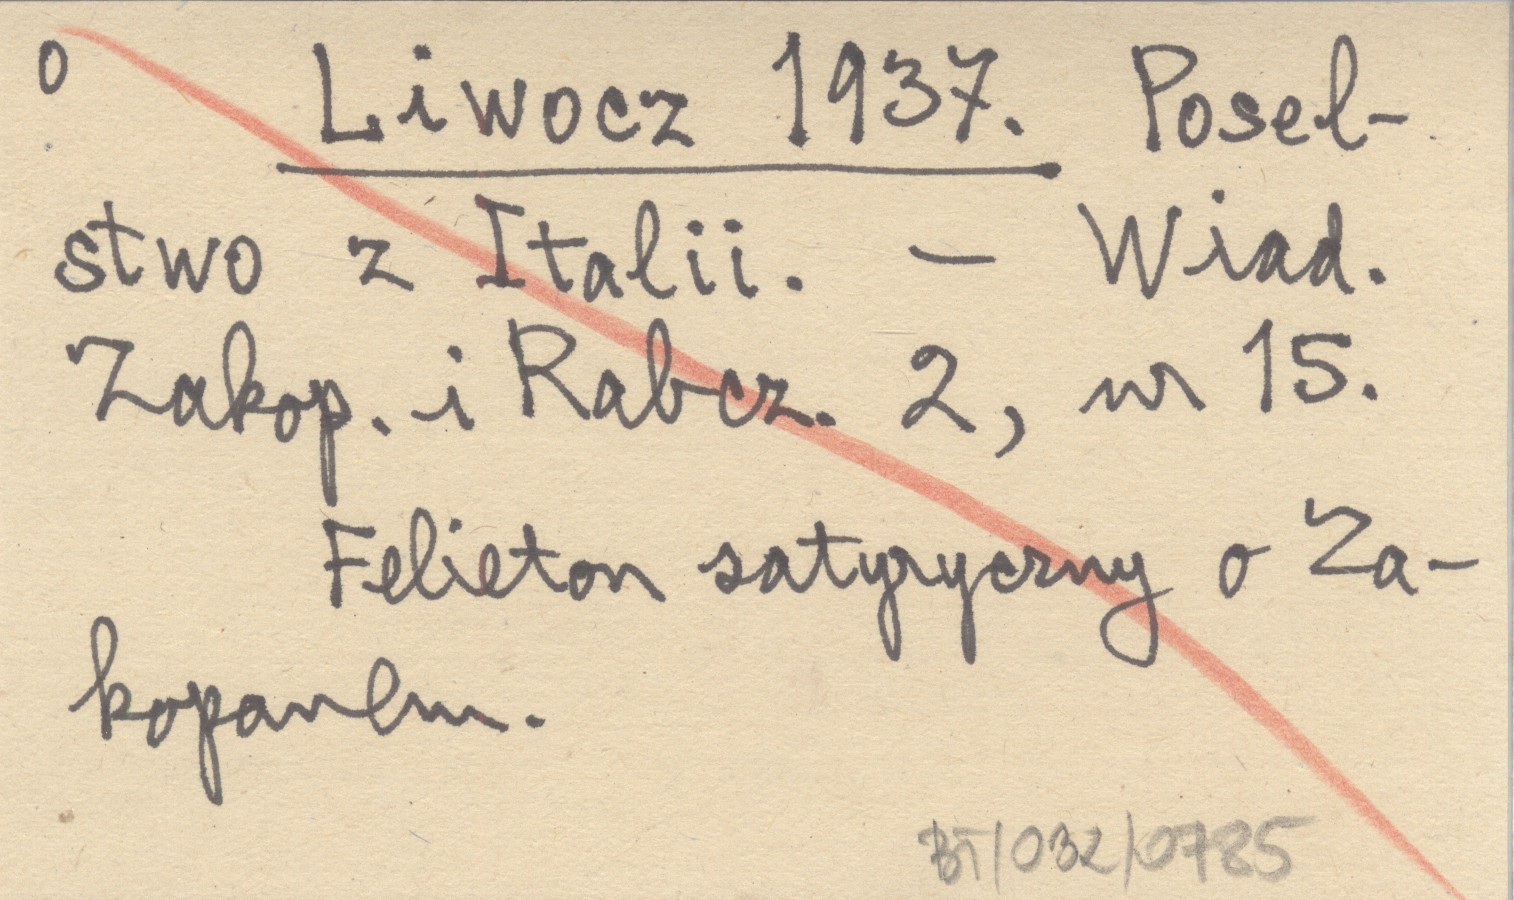 o Liwocz 1937. Posel-
stwo z Italii. – Wiad.
Zakop. i Rabcz. 2, nr 15.
Felieton satyryczny o Za-
kopanem.
BT/032/0785